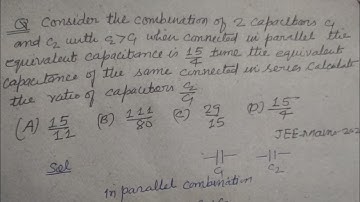 Q Consider the combination of 2 capacitors C1
and C2 with C2>C1 when connected in parallel the
equivalent capacitance is 15/4 time the equivalent
capacitance of the same connected in series Calculate
the ratio of capacitors C2/C1
(A) 15/11 (B) 111/80 (C) 29/15 (D) 15/4
JEE-mains-202
Sol
C1 C2
in parallel combination